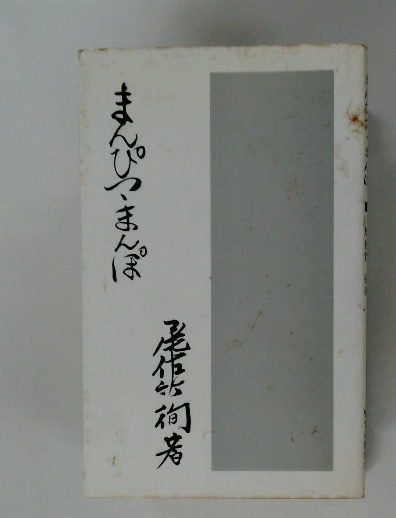 まんぴつ・まんぽ
尾作六徇著